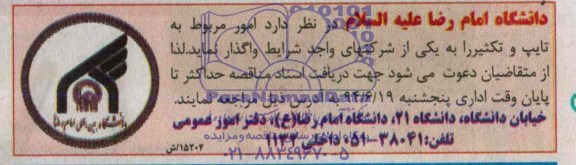 دانشگاه امام رضا علیه السلام در نظر دارد امور مربوط به
تایپ و تکثیررا به یکی از شرکتهای واجد شرایط واگذار نماید.لذا
از متقاضیان دعوت می شود جهت دریافت اسناد مناقصه حداکثر تا
پایان وقت اداری پنجشنبه ۹۴/۶/۱۹ به آدرس ذیل مراجعه نمایند.
خیابان دانشگاه، دانشگاه ۲۱، دانشگاه امام رضا(ع)، دفتر امور عمومی
تلفن:۳۸۰۴۱-۰۵۱ داخلی ۱۱۳۲
۱۵۲۰۴/ش
۰۲۱-۸۸۳۴۹۶۷۰-۵